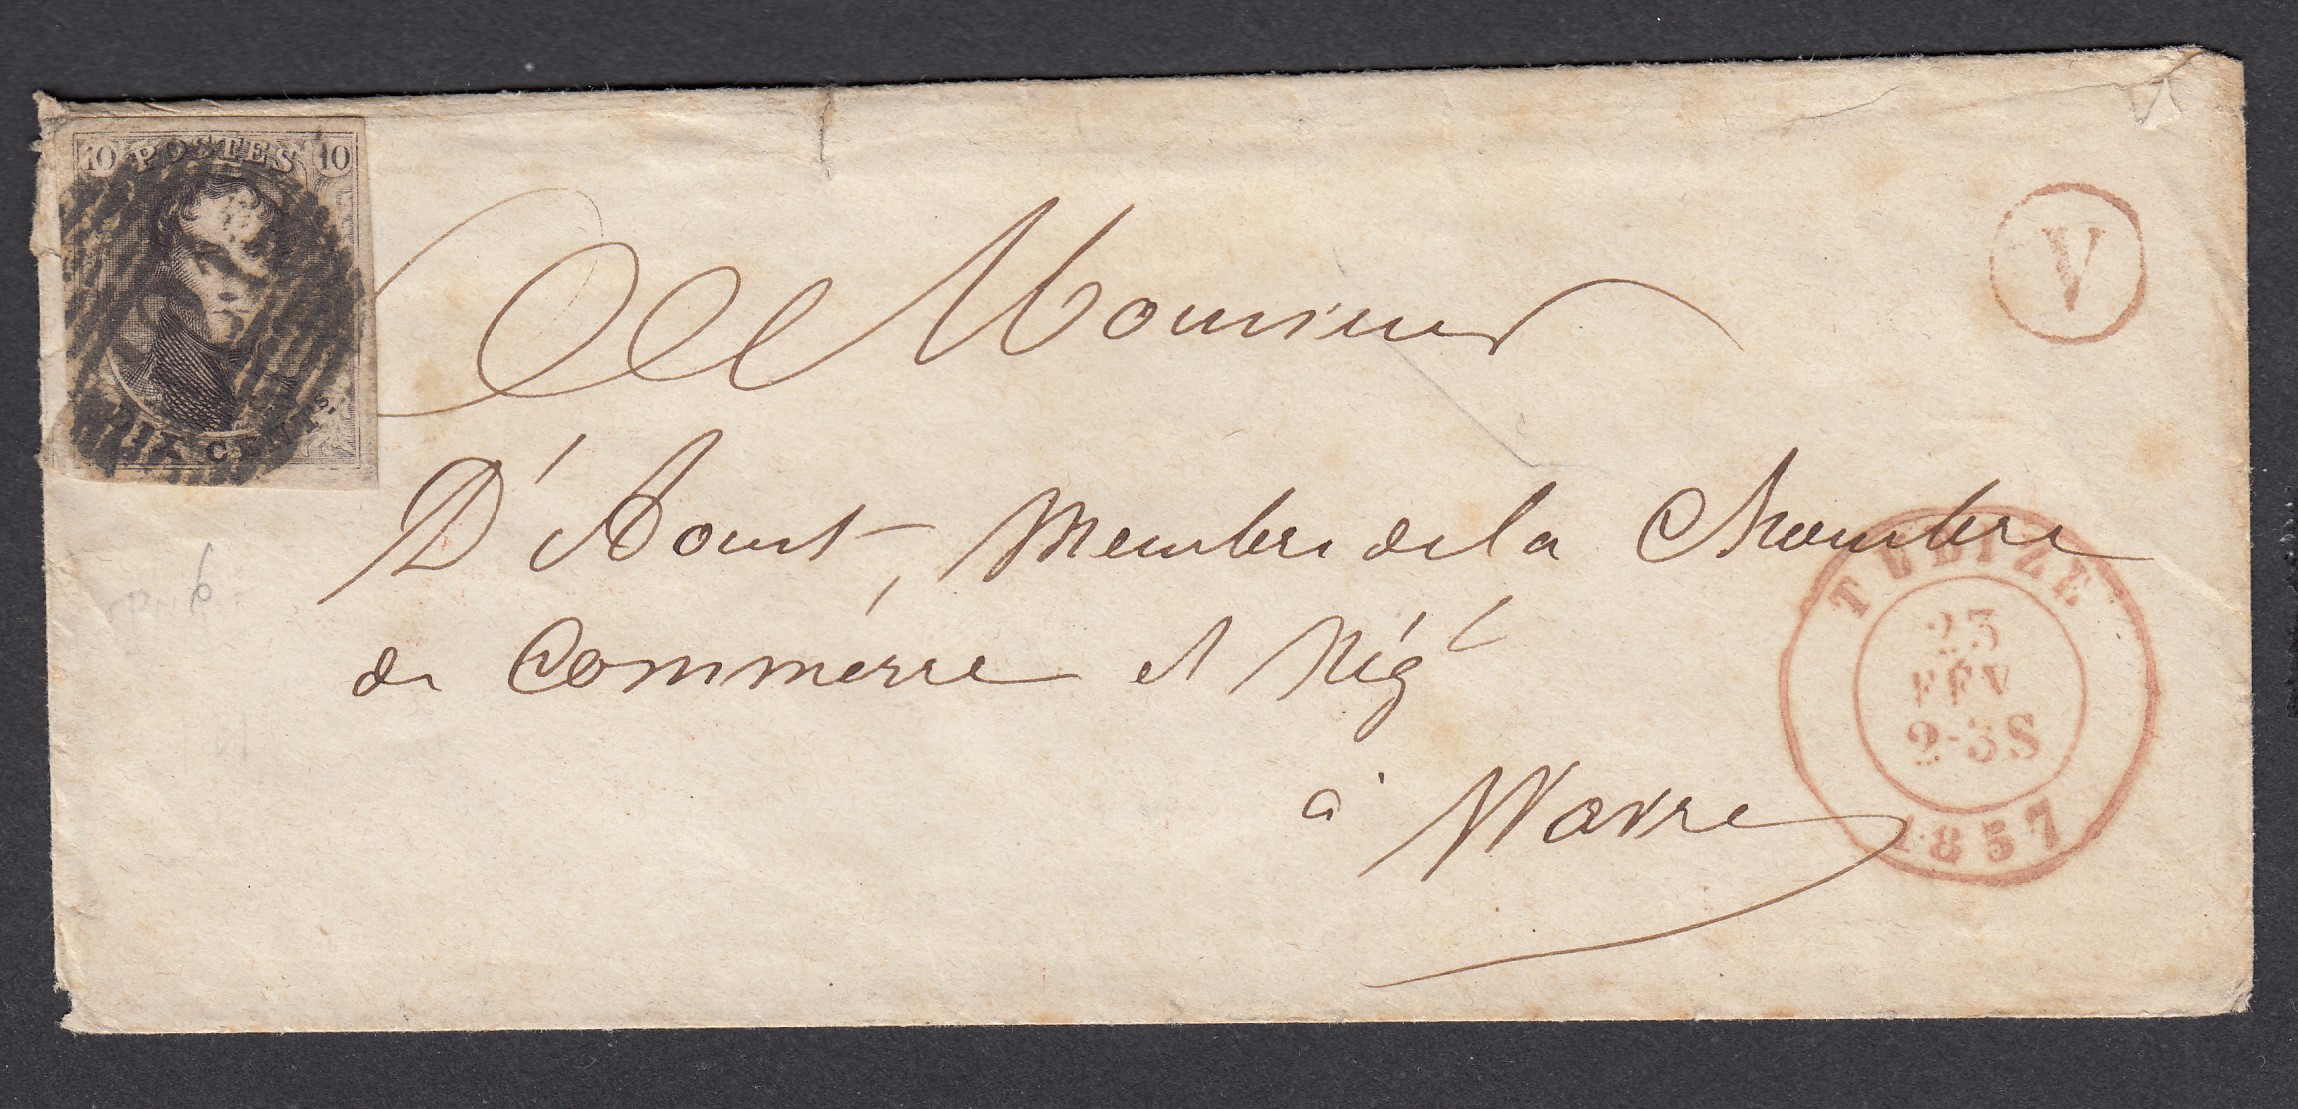 10 POSTES 10
DIX CENTS.
V
Monsieur
D'Hout, Membre de la Chambre
de Commérce et Nég.t
à Wavre
TUBIZE
23
FÉV
2-3S
1857
6